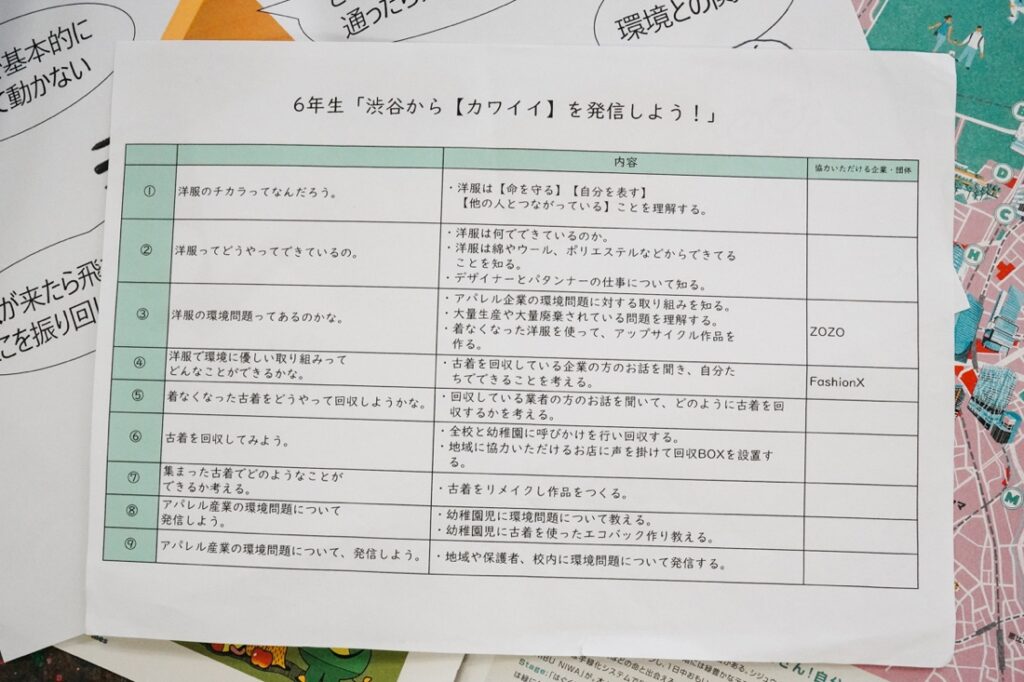 基本的に
て動かない
通ったら
環境との関
が来たら飛
こを振り回し
6年生「渋谷から【カワイイ】を発信しよう！」
内容
協力いただける企業・団体
①
洋服のチカラってなんだろう。
・洋服は【命を守る】【自分を表す】
【他の人とつながっている】ことを理解する。
②
洋服ってどうやってできているの。
・洋服は何でできているのか。
・洋服は綿やウール、ポリエステルなどからできてる
ことを知る。
・デザイナーとパタンナーの仕事について知る。
③
洋服の環境問題ってあるのかな。
・アパレル企業の環境問題に対する取り組みを知る。
・大量生産や大量廃棄されている問題を理解する。
・着なくなった洋服を使って、アップサイクル作品を
作る。
ZOZO
④
洋服で環境に優しい取り組みって
どんなことができるかな。
・古着を回収している企業の方のお話を聞き、自分た
ちでできることを考える。
FashionX
⑤
着なくなった古着をどうやって回収しようかな。
・回収している業者の方のお話を聞いて、どのように古着を回
収するかを考える。
⑥
古着を回収してみよう。
・全校と幼稚園に呼びかけを行い回収する。
・地域に協力いただけるお店に声を掛けて回収BOXを設置す
る。
⑦
集まった古着でどのようなことが
できるか考える。
・古着をリメイクし作品をつくる。
⑧
アパレル産業の環境問題について
発信しよう。
・幼稚園児に環境問題について教える。
・幼稚園児に古着を使ったエコバック作り教える。
⑨
アパレル産業の環境問題について、発信しよう。
・地域や保護者、校内に環境問題について発信する。
D
C
H
M